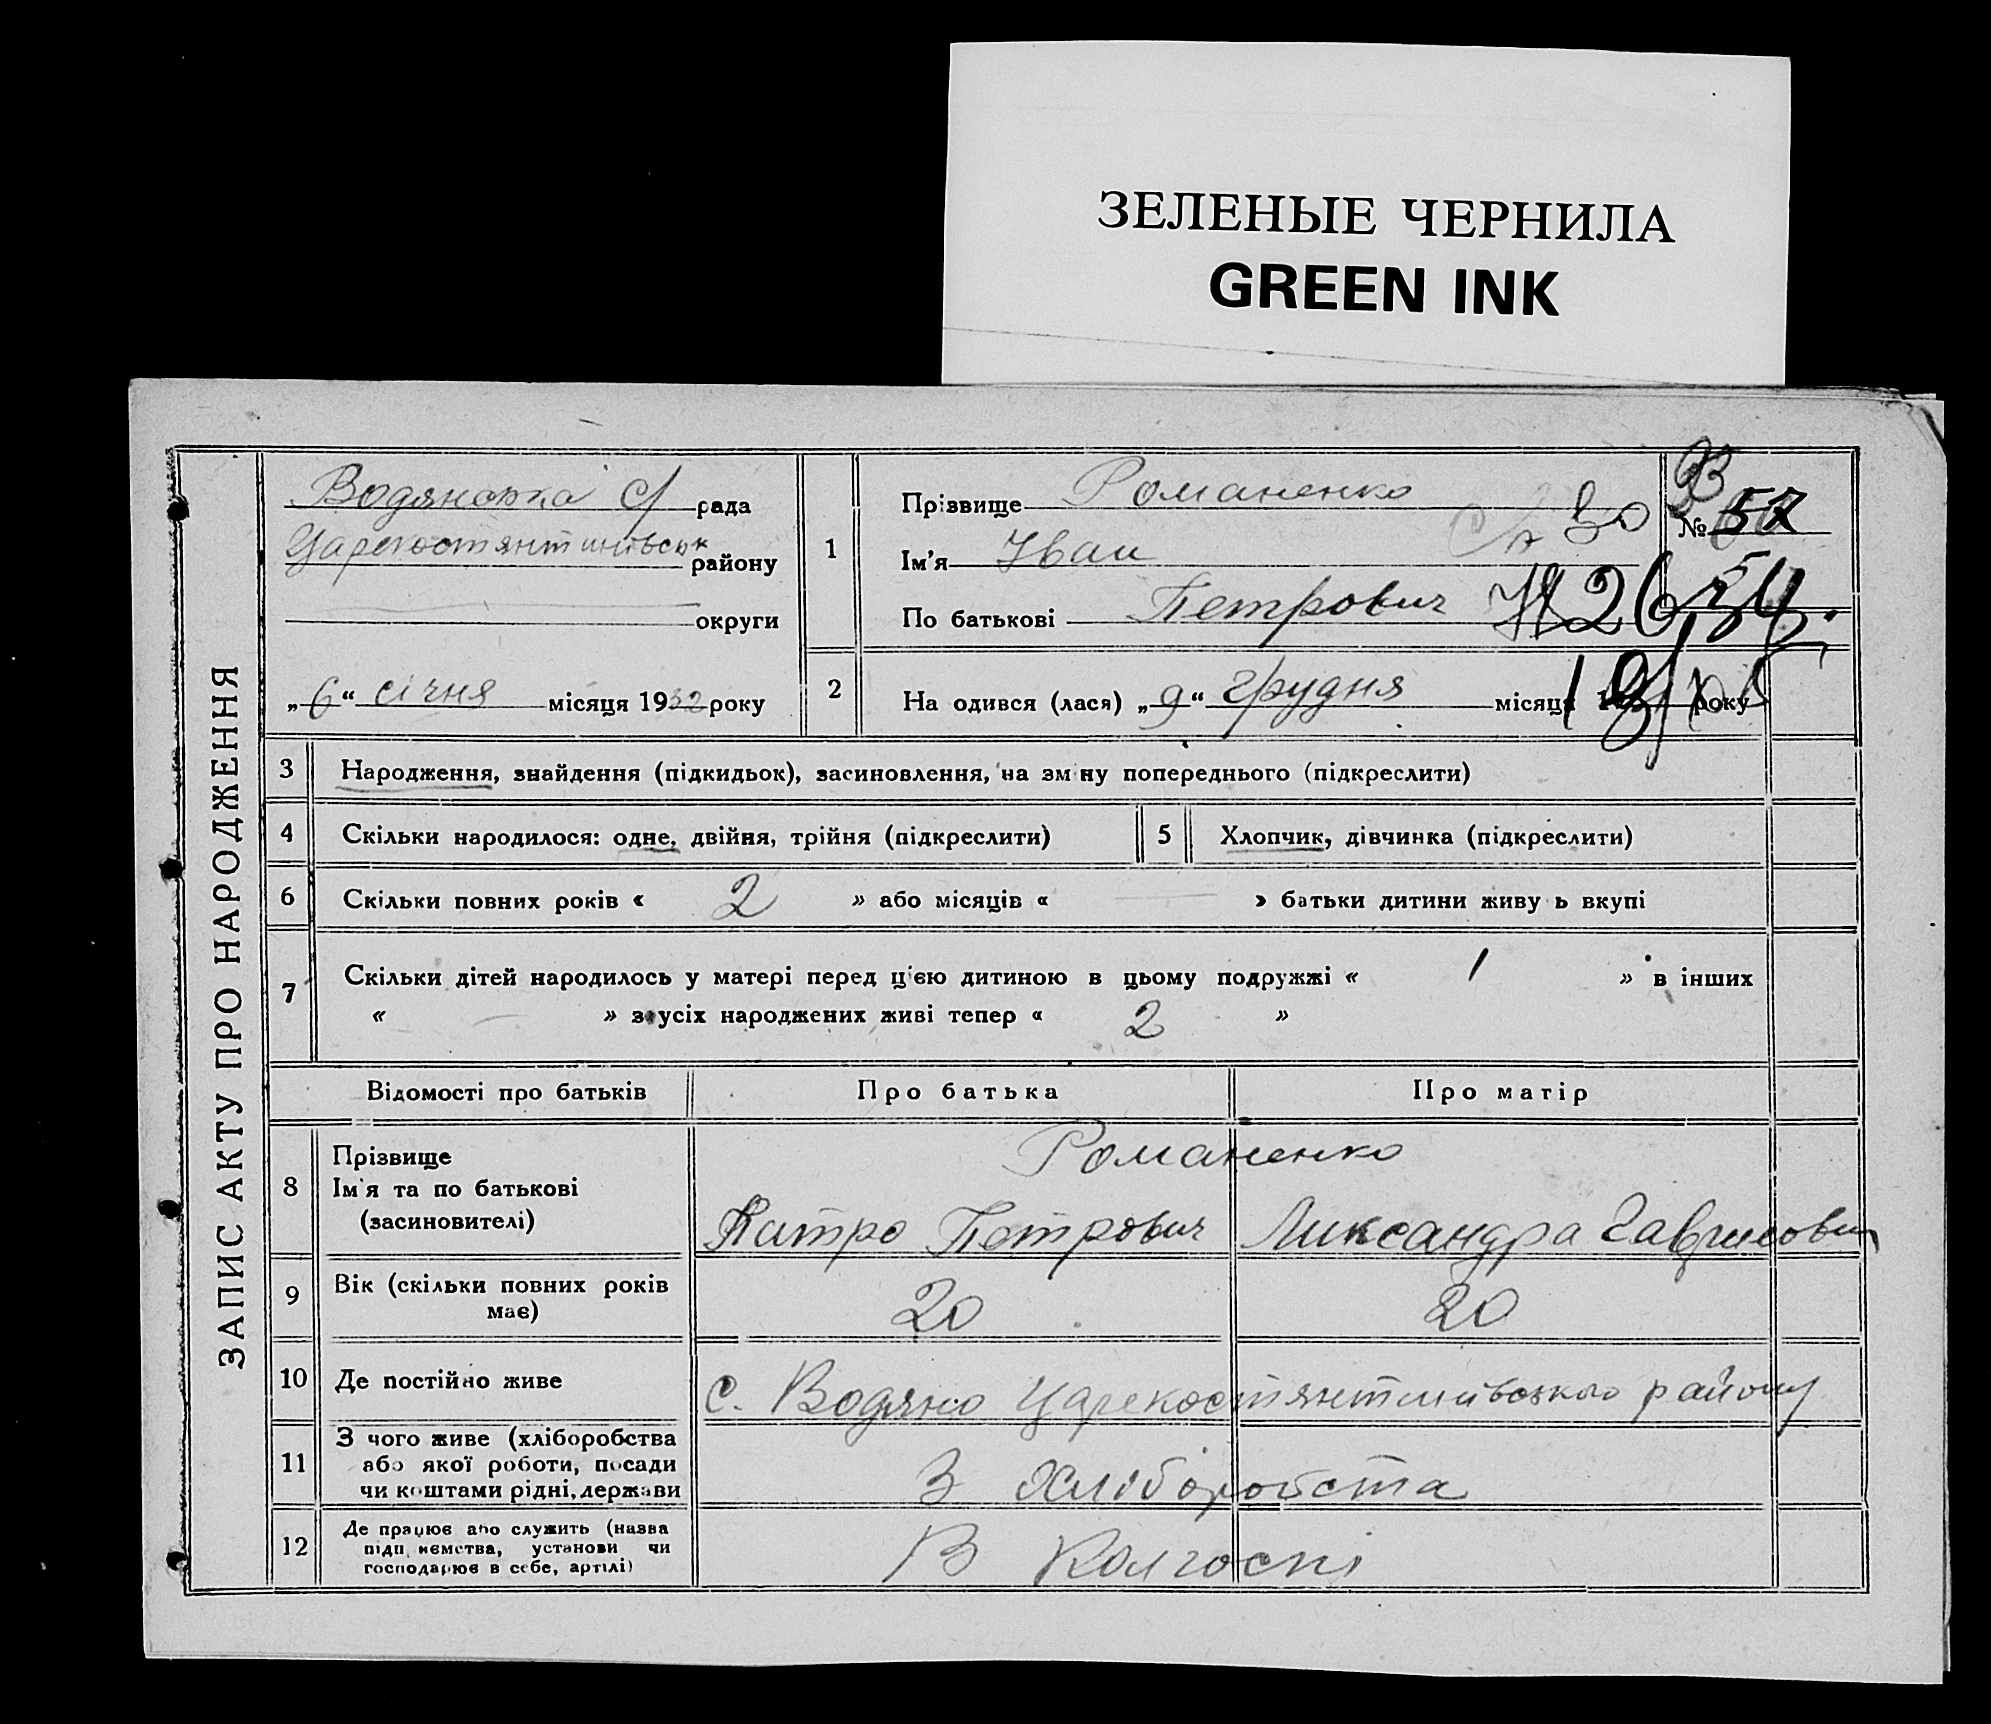 ЗЕЛЕНЫЕ ЧЕРНИЛА
GREEN INK
ЗАПИС АКТУ ПРО НАРОДЖЕННЯ
Водяновка С/ рада
району
округи
„ 6 “ січня місяця 1932 року
1
Прізвище Романенко
Ім'я Іван
По батькові Петрович
№ 57
2
На одився (лася) „ 9 “ грудня місяця року
3 Народження, знайдення (підкидьок), засиновлення, на зм ну попереднього (підкреслити)
4 Скільки народилося: одне, двійня, трійня (підкреслити) 5 Хлопчик, дівчинка (підкреслити)
6 Скільки повних років « 2 » або місяців « — » батьки дитини живу ь вкупі
7 Скільки дітей народилось у матері перед цією дитиною в цьому подружжі « 1 » в інших
« — » з усіх народжених живі тепер « 2 »
Відомості про батьків Про батька Про матір
8 Прізвище
Ім'я та по батькові
(засиновителі)
Романенко
Петрович
9 Вік (скільки повних років
має)
20 20
10 Де постійно живе с. Водяно району
11 З чого живе (хліборобства
або якої роботи, посади
чи коштами рідні, держави
З Хліборобста
12 Де працює або служить (назва
підп иємства, установи чи
господарює в себе, артілі)
В Колгоспі